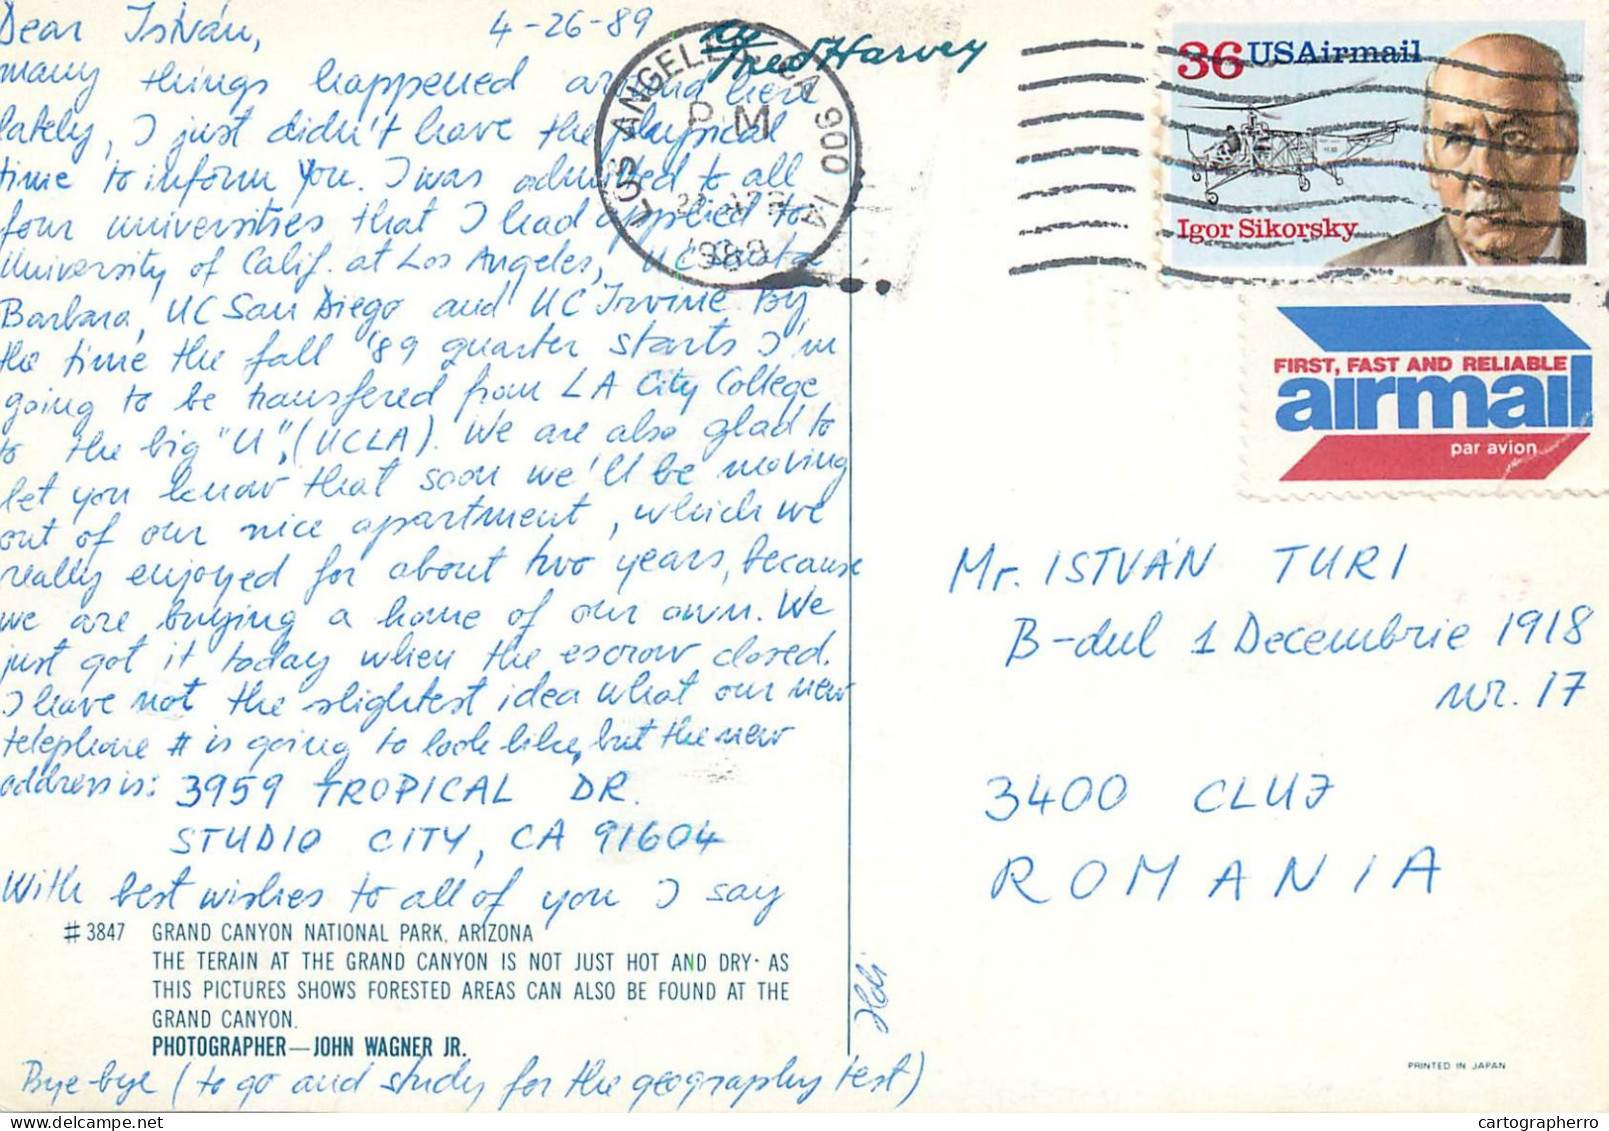 Dear István, 4-26-89
many things happened around here
lately, I just didn't have the physical
time to inform you. I was admitted to all
four universities that I had applied to
University of Calif. at Los Angeles, UC Santa
Barbara, UC San Diego and UC Irvine. By
the time the fall '89 quarter starts I'm
going to be transfered from LA City College
to the big "U", (UCLA). We are also glad to
let you know that soon we'll be moving
out of our nice apartment, which we
really enjoyed for about two years, because
we are buying a home of our own. We
just got it today when the escrow closed.
I have not the slightest idea what our new
telephone # is going to look like, but the new
address is: 3959 TROPICAL DR.
STUDIO CITY, CA 91604
With best wishes to all of you I say
#3847 GRAND CANYON NATIONAL PARK, ARIZONA
THE TERAIN AT THE GRAND CANYON IS NOT JUST HOT AND DRY- AS
THIS PICTURES SHOWS FORESTED AREAS CAN ALSO BE FOUND AT THE
GRAND CANYON.
PHOTOGRAPHER—JOHN WAGNER JR.
Bye-bye (to go and study for the geography test)
Fred Harvey
LOS ANGELES, CA 900 1A
PM
1989
36 USAirmail
Igor Sikorsky
FIRST, FAST AND RELIABLE
airmail
par avion
Mr. ISTVÁN TURI
B-dul 1 Decembrie 1918
nr. 17
3400 CLUJ
ROMANIA
PRINTED IN JAPAN
cartographerro